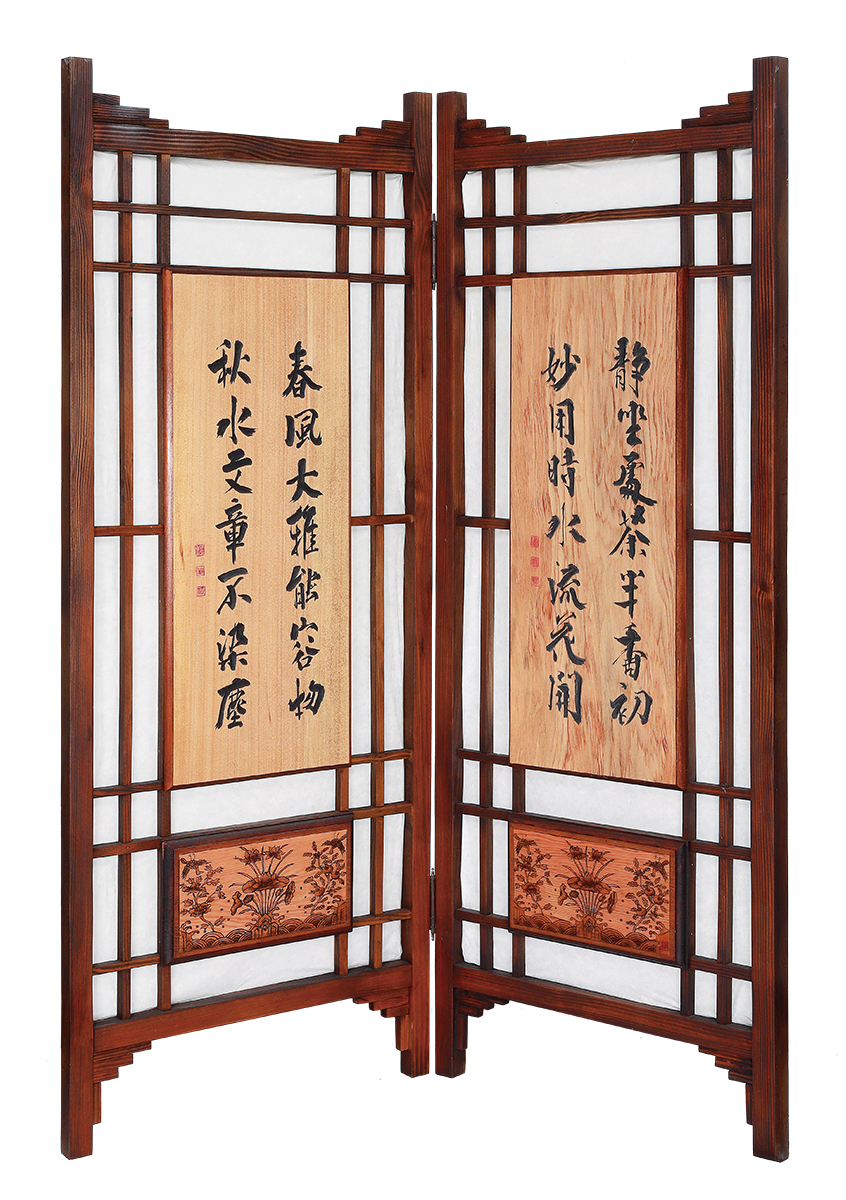 靜坐處茶半香初
妙用時水流花開
春風大雅能容物
秋水文章不染塵